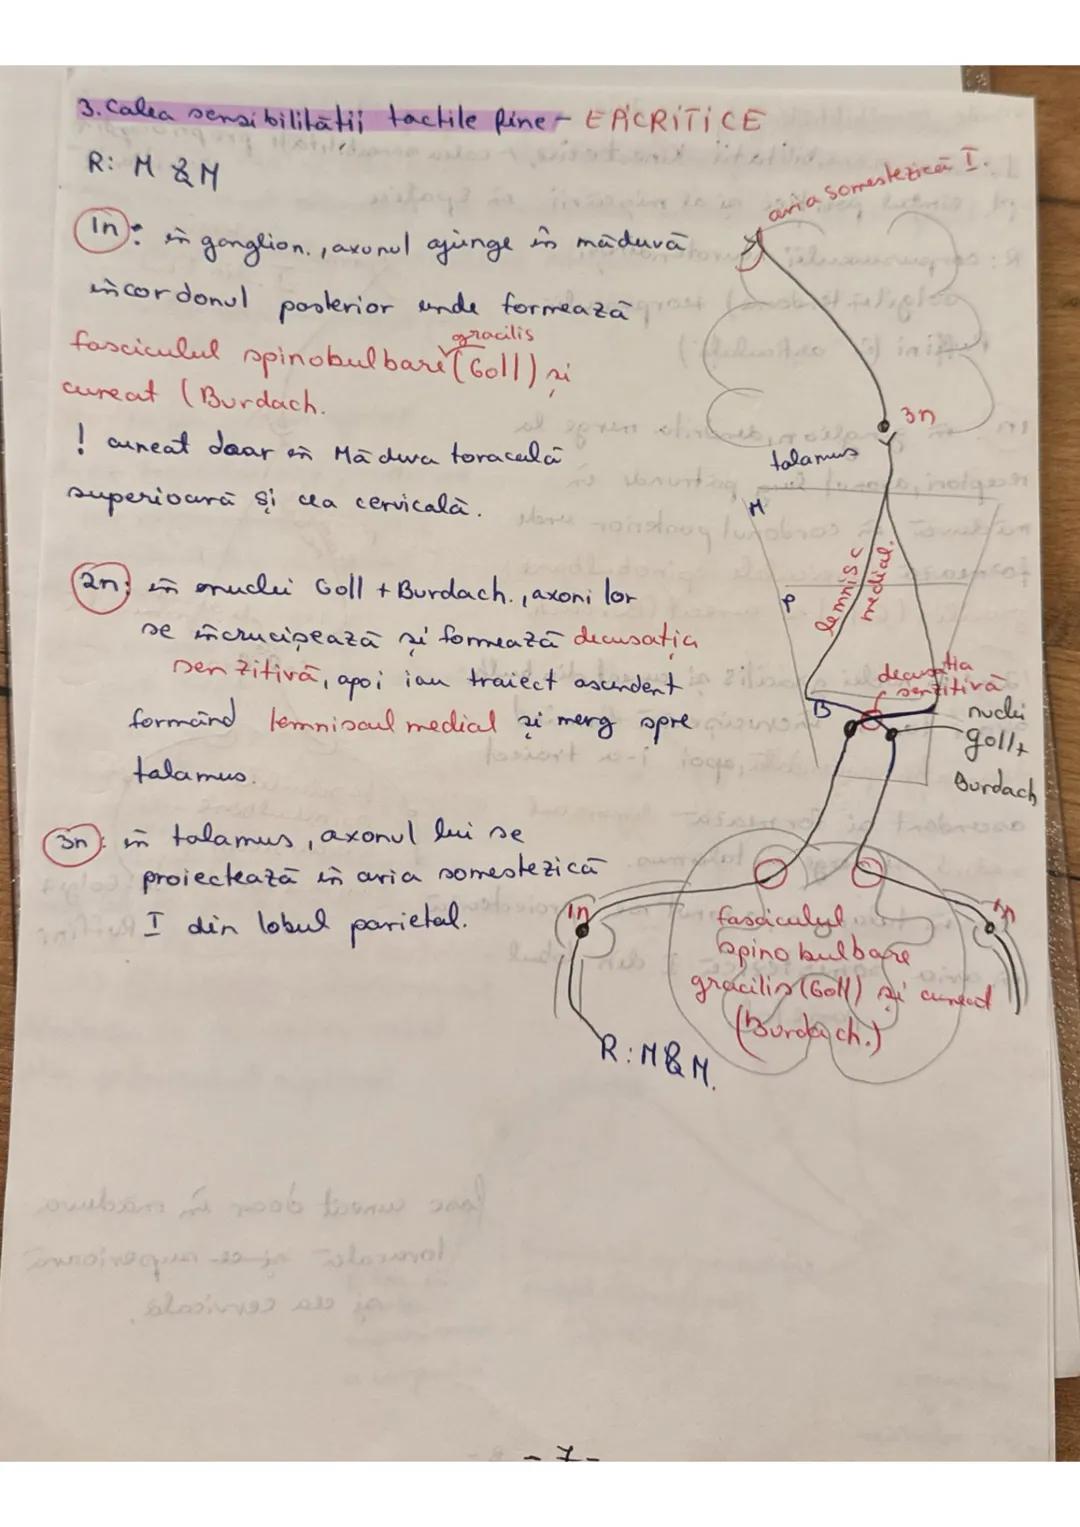 3. Calea sensibilității tactile fine - EPICRITICE
R: M & M
1n: în ganglion., axonul ajunge în măduvă
în cordonul posterior unde formează
gracilis
fasciculul spinobulbare (Goll) și
cuneat (Burdach.
! cuneat doar în Măduva toracală
superioară și cea cervicală.
2n: în nuclei Goll + Burdach., axoni lor
se încrucișează și formează decusația
senzitivă, apoi iau traiect ascendent
formând lemniscul medial și merg spre
talamus.
3n: în talamus, axonul lui se
proiectează în aria somestezică
I din lobul parietal.
aria somestezică I.
3n
talamus
M
P
lemnisc
medial.
decusația
senzitivă
B
nuclei
goll+
Burdach
1n
1n
fasciculul
spinobulbare
gracilis (Goll) și cuneat
(Burdach.)
R: M & M.
- 7 -